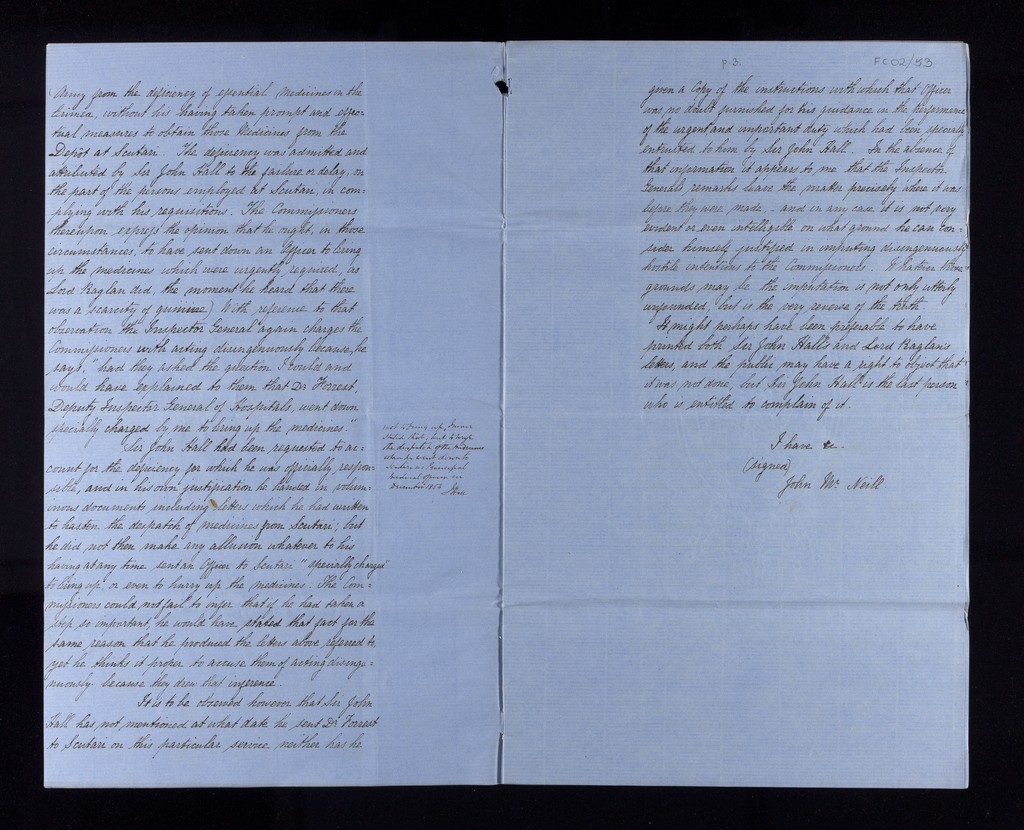 Army from the deficiency of essential Medicines in the
Crimea, without his having taken prompt and effec-
tual measures to obtain those Medicines from the
Depôt at Scutari. The deficiency was admitted and
attributed by Sir John Hall to the failure or delay, on
the part of the persons employed at Scutari, in com-
plying with his requisitions. The Commissioners
thereupon express the opinion that he ought, in those
circumstances, to have sent down an Officer to bring
up the medicines which were urgently required, as
Lord Raglan did, the moment he heard that there
was a scarcity of quinine) With reference to that
observation the Inspector General again charges the
Commissioners with acting disingenuously because, he
says, "had they asked the question I could and
would have explained to them that Dr Forrest,
Deputy Inspector General of Hospitals, went down
specially charged by me to bring up the medicines."
Sir John Hall had been requested to ac-
count for the deficiency for which he was officially respon-
sible, and in his own justification he handed in volum-
inous documents including letters which he had written
to hasten the despatch of medicines from Scutari; but
he did not then make any allusion whatever to his
having at any time sent an Officer to Scutari "specially charged"
to bring up; or even to hurry up the medicines. The Com-
missioners could not fail to infer that if he had taken a
step so important, he would have stated that fact for the
same reason that he produced the letters above referred to,
yet he thinks it proper to accuse them of acting disinge-
nuously because they drew that inference.
It is to be observed however that Sir John
Hall has not mentioned at what date he sent Dr Forrest
to Scutari on this particular service neither has he
not to bring up, I never
stated that, but to urge
the despatch of the medicines
when he went down to
Scutari as Principal
Medical Officer in
December 1854 J Hall
p 3.
FC02/53
given a Copy of the instructions with which that Officer
was no doubt furnished for his guidance in the performance
of the urgent and important duty which had been specially
entrusted to him by Sir John Hall. In the absence of
that information it appears to me that the Inspector
General's remarks leave the matter precisely where it was
before they were made, and in any case it is not very
evident or even intelligible on what ground he can con-
sider himself justified in imputing disingenuously
hostile intentions to the Commissioners. Whatever those
grounds may be the imputation is not only utterly
unfounded, but is the very reverse of the truth.
It might perhaps have been preferable to have
printed both Sir John Hall's and Lord Raglan's
letters, and the public may have a right to object that
it was not done, but Sir John Hall is the last person
who is entitled to complain of it.
I have &c.
(signed)
John Mc Neill.